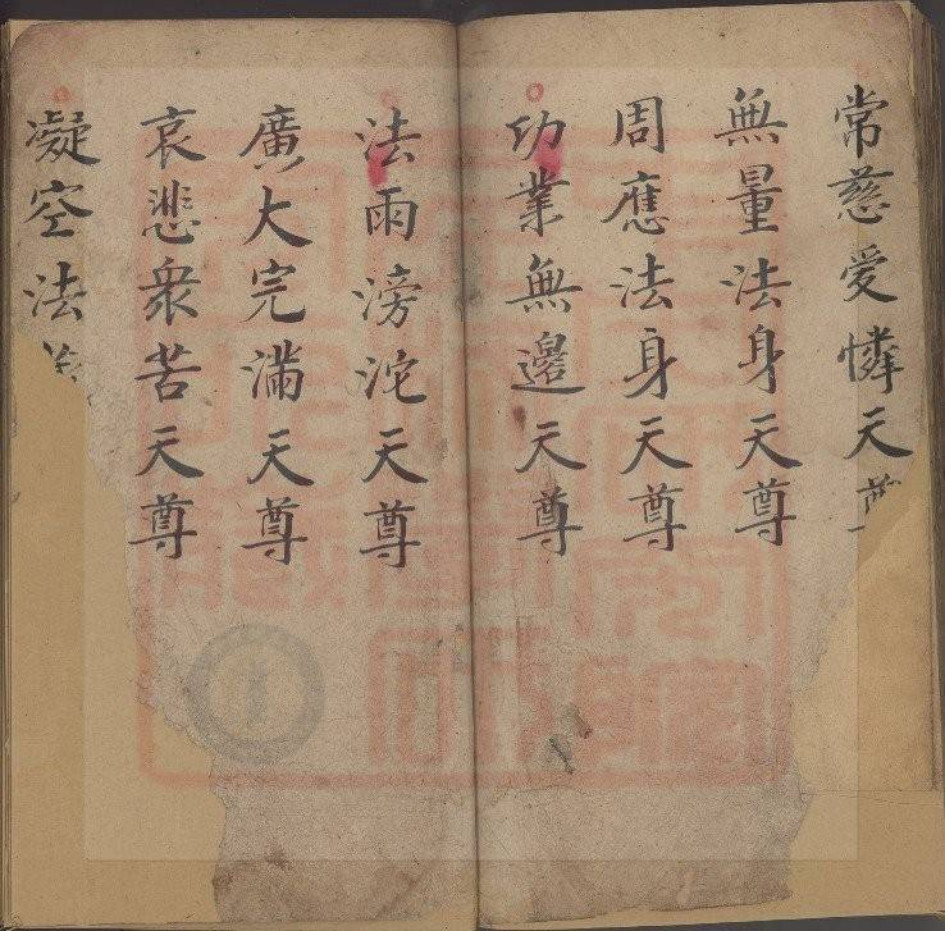 常慈愛憐天尊
無量法身天尊
周應法身天尊
功業無邊天尊
法雨滂沱天尊
廣大完滿天尊
哀悲衆苦天尊
凝空法